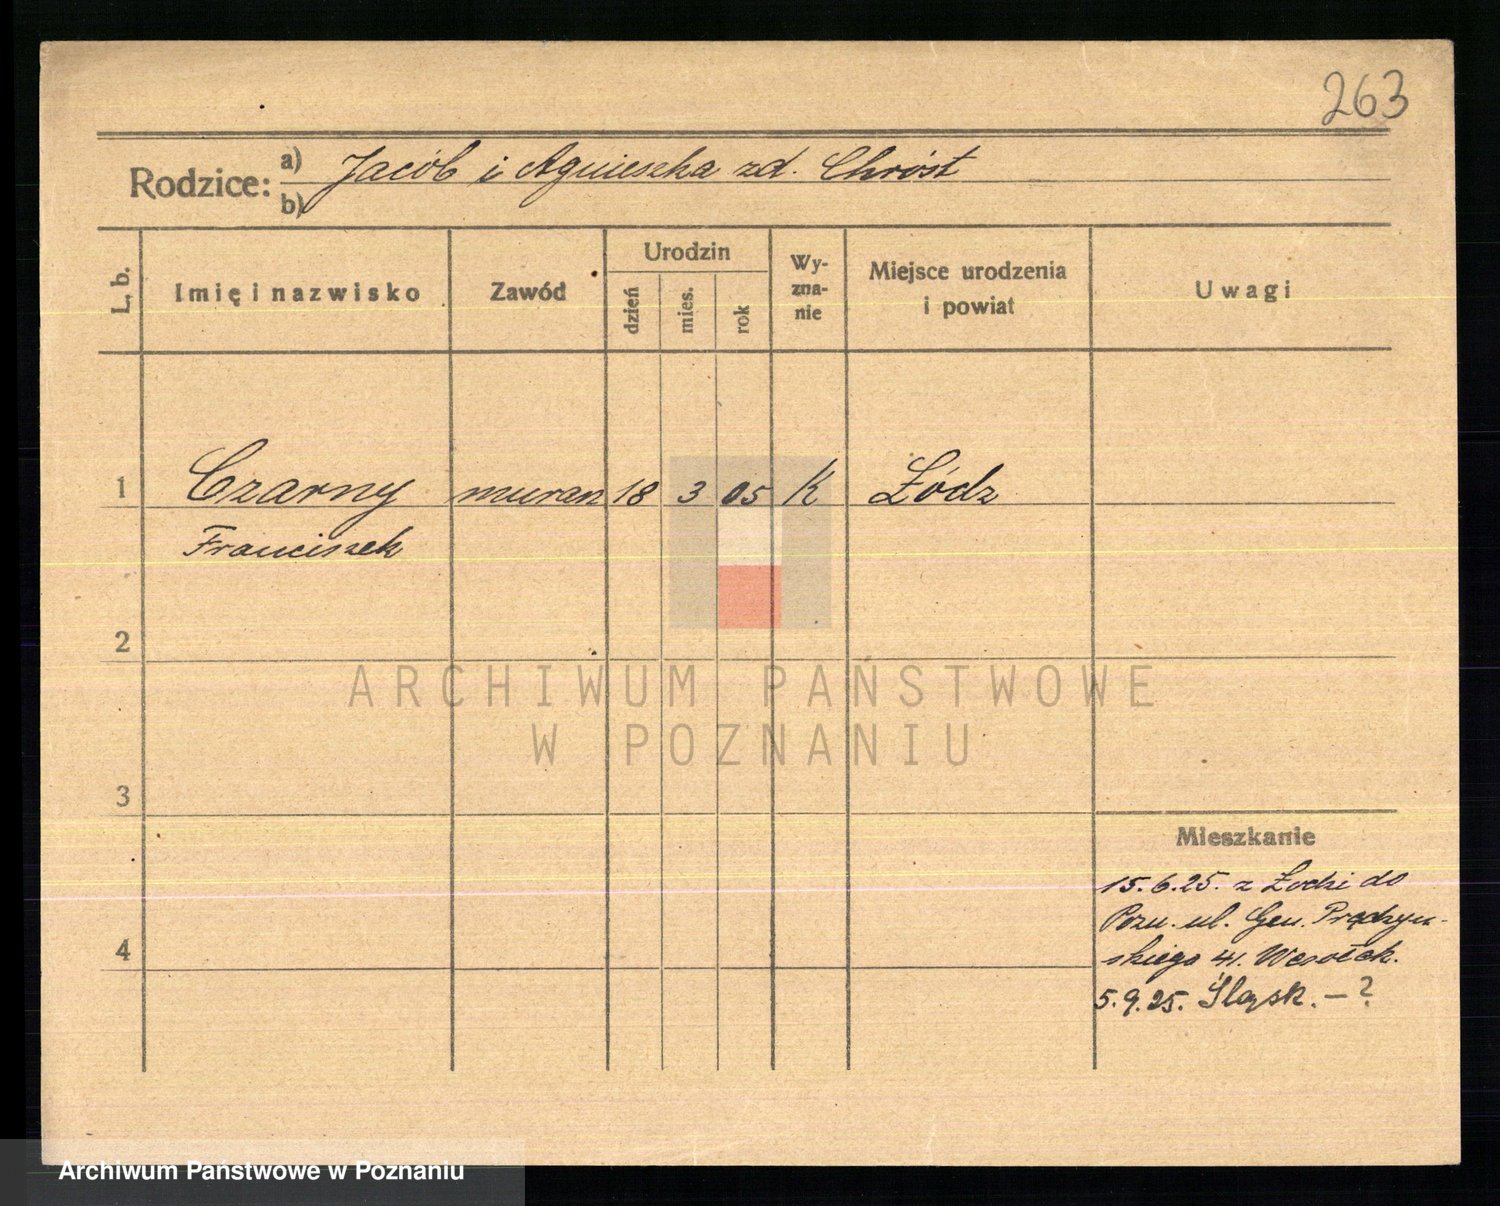 263
Rodzice: a) Jacób i Agnieszka zd. Chróst
b)
L. b.
Imię i nazwisko
Zawód
Urodzin
dzień
mies.
rok
Wy-
zna-
nie
Miejsce urodzenia
i powiat
Uwagi
1 Czarny murarz 18 3 05 K Łódz
Franciszek
2
ARCHIWUM PAŃSTWOWE
W POZNANIU
3
Mieszkanie
15.6.25. z Łodzi do
Pozn. ul. Gen. Prądzyń-
skiego 41. Wesołek.
4
5.9.25. Śląsk. – ?
Archiwum Państwowe w Poznaniu